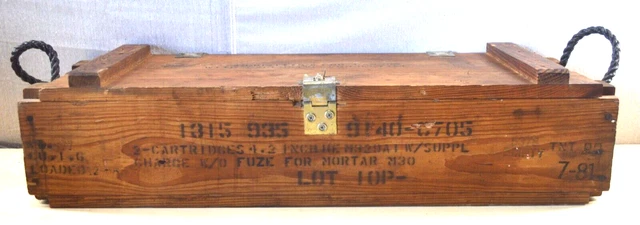 1315 935 9140-6705
2-CARTRIDGES 4.2 INCH M329A1 W/SUPPL
CHARGE W/O FUZE FOR MORTAR M30
LOT IOP-
LOADED
TNT
7-81